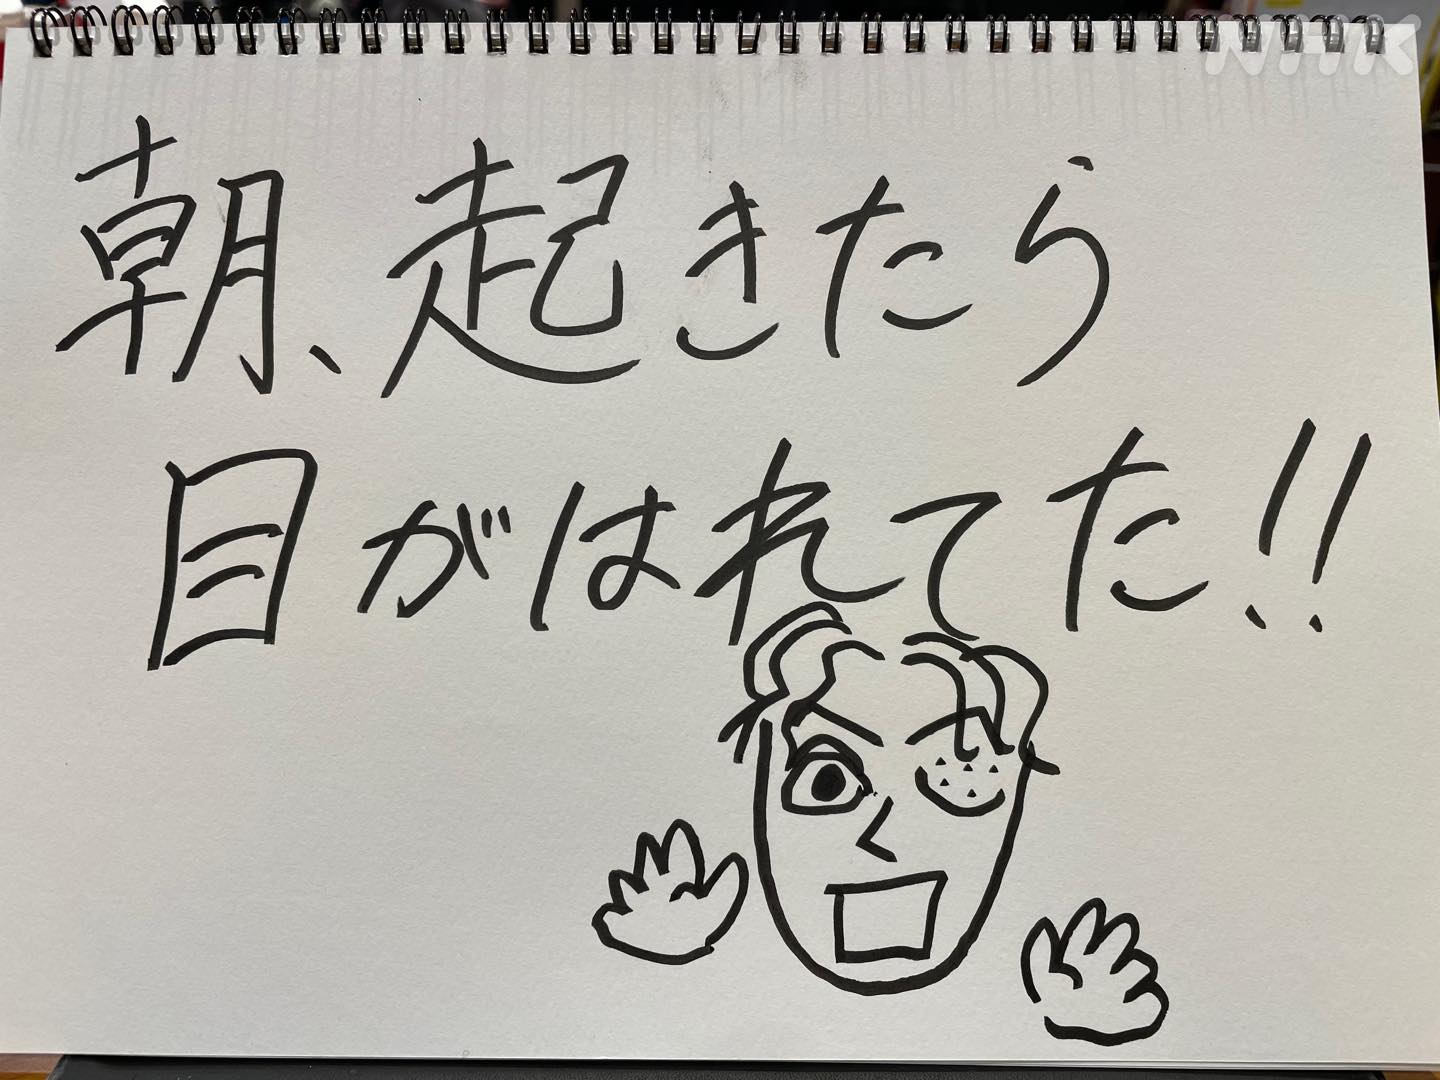 NHK
朝、起きたら
目がはれてた!!